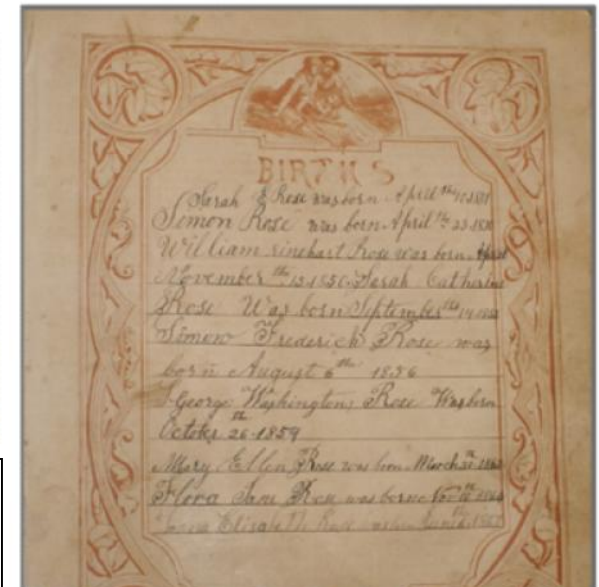 BIRTHS
Sarah E Rose was born April th
Simon Rose was born April th 23
William rinehart Rose was born
November th 13 1850 Sarah Catharine
Rose Was born September th 14
Simon Frederick Rose was
born August 6 th 1856
George Washington Rose Was born
October 26 th 1859
Mary Ellen Rose was born March
Flora Jane Rose was borne Nov
Elisabeth Rose